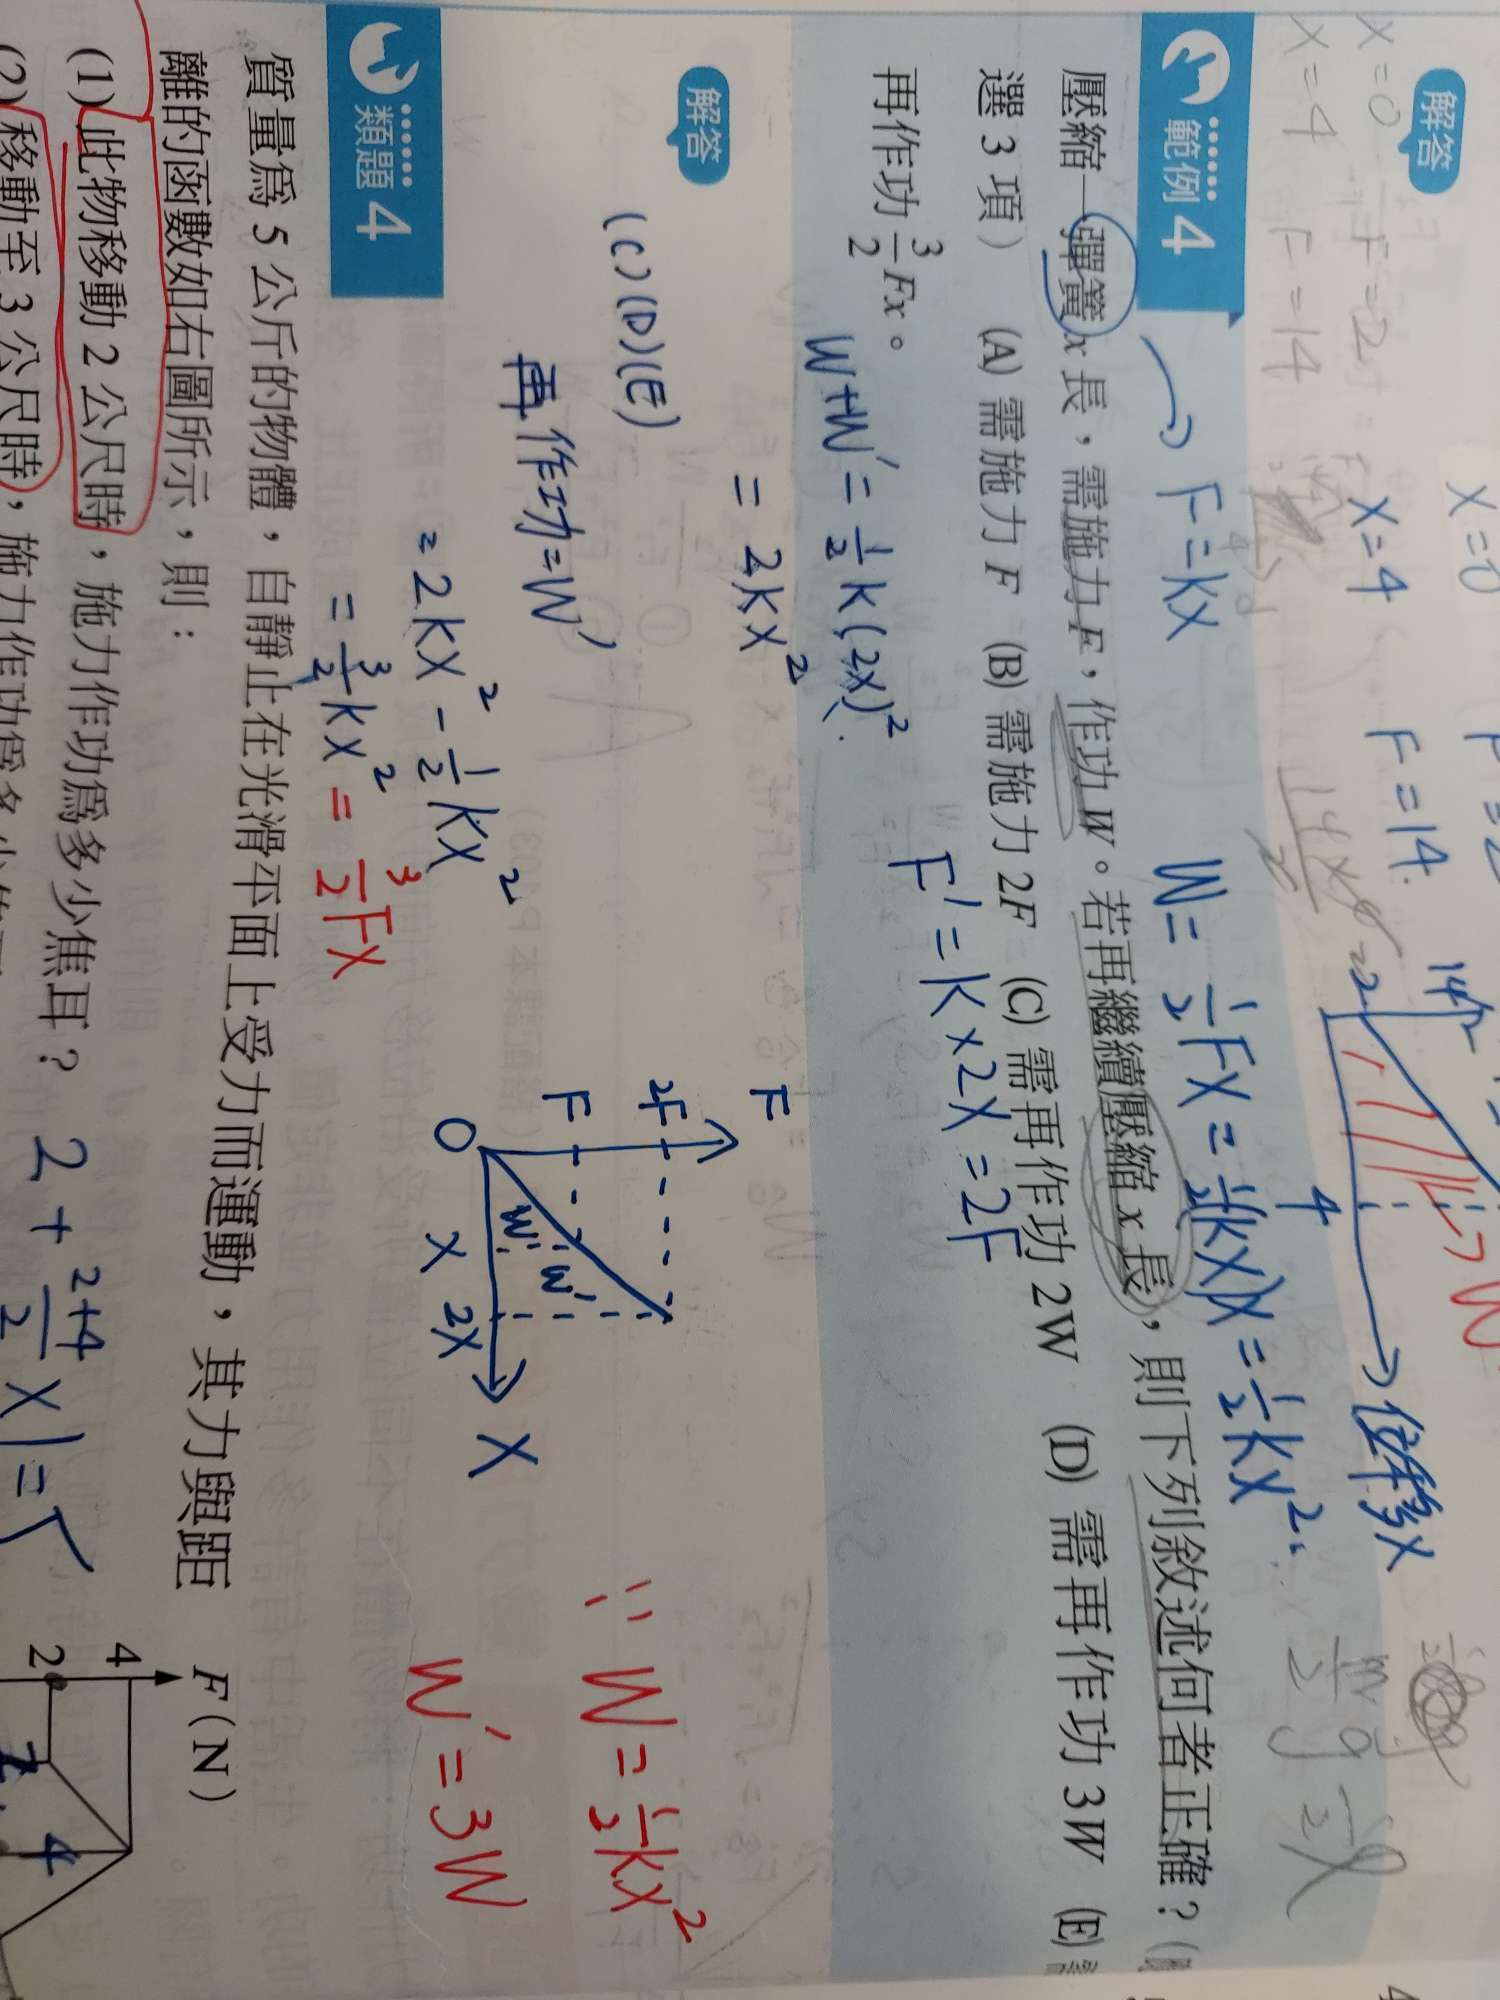 解答
X=0
X=4
F=14
X=0
X=4
F=14.
14
4
位移X
W
範例 4
F=kX
W=½FX=½(kX)X=½kX²
壓縮一彈簧x長，需施力F，作功W。若再繼續壓縮x長，則下列敘述何者正確？（
選3項） (A) 需施力F (B) 需施力2F (C) 需再作功2W (D) 需再作功3W (E)
再作功 3/2 Fx。
F'=k×2X=2F
W+W'=½k(2X)²
=2kX²
解答
(C)(D)(E)
再作功=W'
=2kX²-½kX²
=3/2kX²=3/2FX
F
2F
F
O
X
2X
X
W
W'
∵W=½kX²
W'=3W
類題 4
質量為5公斤的物體，自靜止在光滑平面上受力而運動，其力與距
離的函數如右圖所示，則：
(1)此物移動2公尺時，施力作功為多少焦耳？
2+(2+4)/2×1=5
(2)移動至3公尺時，施力作功為多少
F(N)
4
2
4